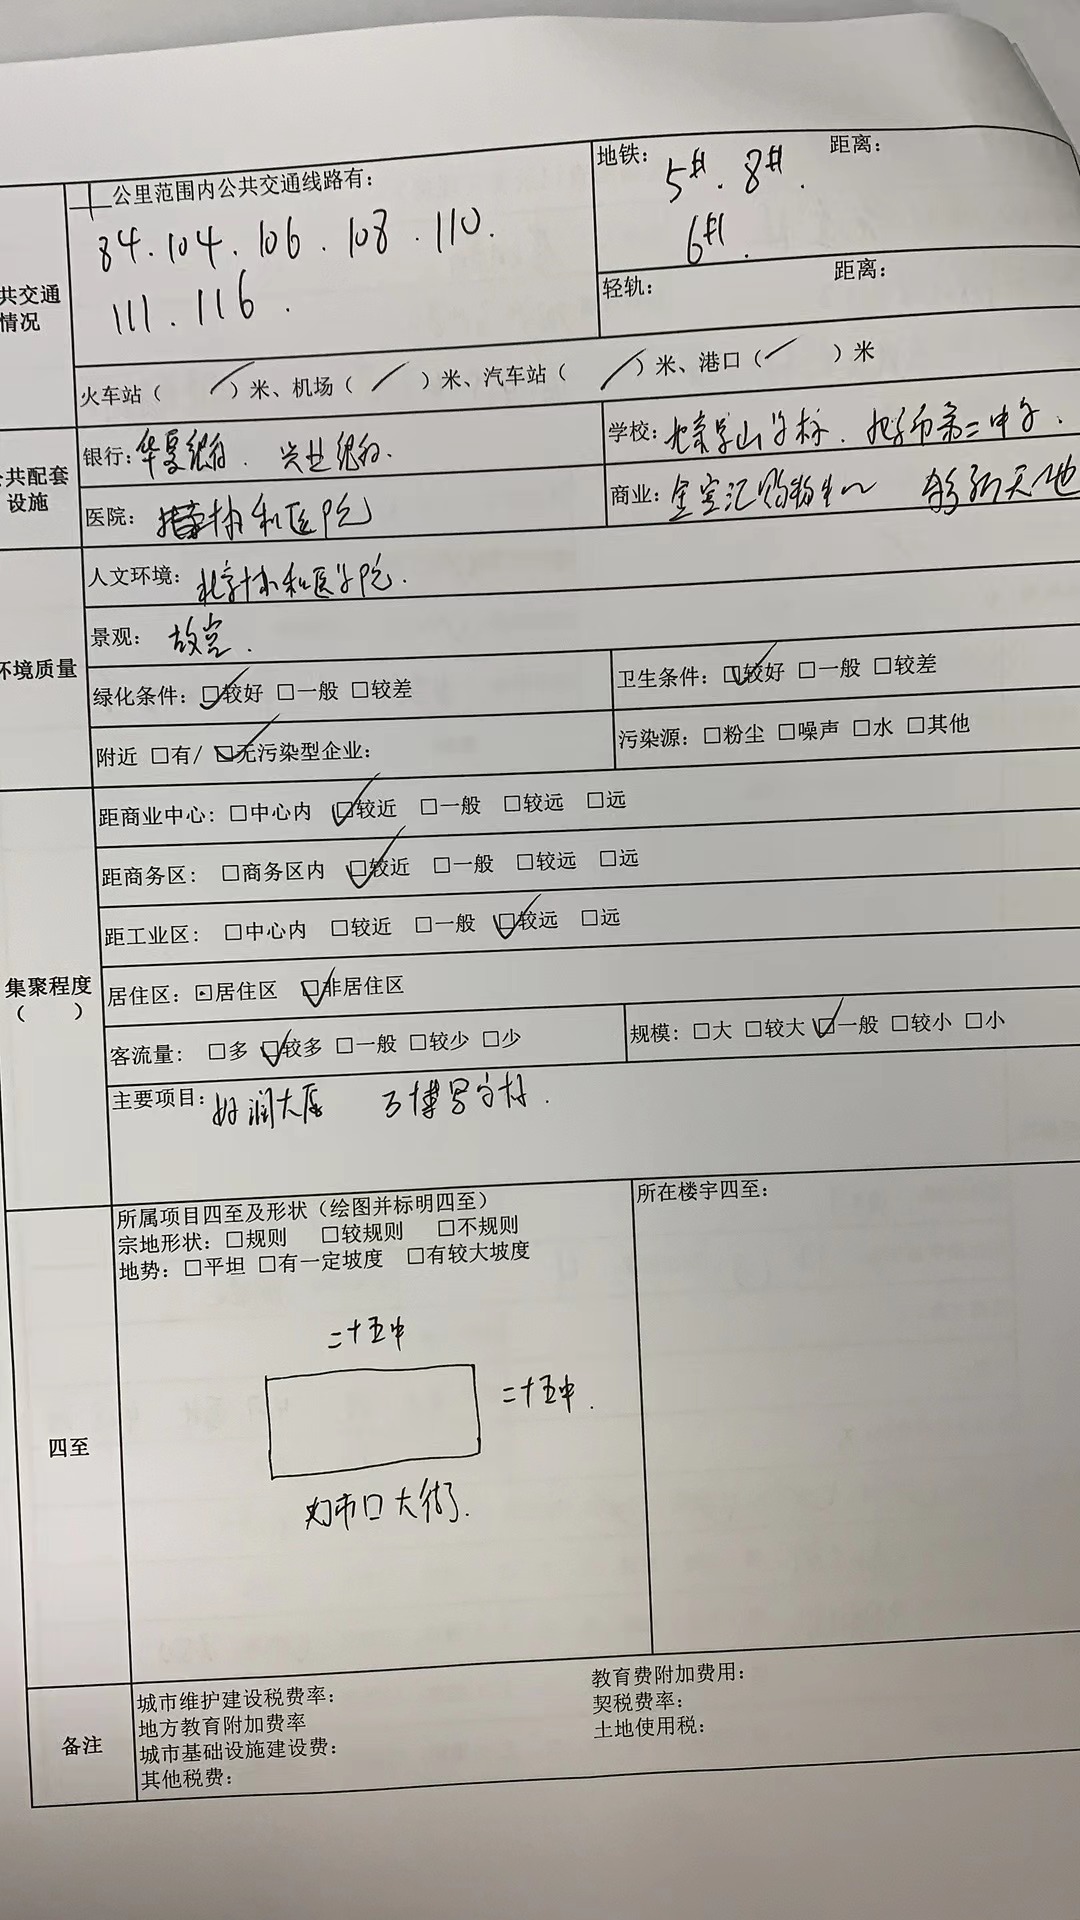 公里范围内公共交通线路有：
84.104.106.108.110.
111.116.
地铁： 5#.8#. 距离：
6#.
轻轨： 距离：
共交通
情况
火车站（ ／ ）米、机场（ ／ ）米、汽车站（ ／ ）米、港口（ ／ ）米
公共配套
设施
银行：华夏银行. 兴业银行.
学校： 北京市第二中学.
医院： 协和医院
商业：金宝汇购物中心 新天地
环境质量
人文环境：北京协和医学院.
景观： 故宫.
绿化条件：☑较好 □一般 □较差
卫生条件：☑较好 □一般 □较差
附近 □有/ ☑无污染型企业：
污染源：□粉尘 □噪声 □水 □其他
集聚程度
（ ）
距商业中心：□中心内 ☑较近 □一般 □较远 □远
距商务区： □商务区内 ☑较近 □一般 □较远 □远
距工业区： □中心内 □较近 □一般 ☑较远 □远
居住区：⊡居住区 ☑非居住区
客流量： □多 ☑较多 □一般 □较少 □少
规模：□大 □较大 ☑一般 □较小 □小
主要项目：好润大厦 万博写字楼.
四至
所属项目四至及形状（绘图并标明四至）
宗地形状：□规则 □较规则 □不规则
地势：□平坦 □有一定坡度 □有较大坡度
二十五中
二十五中.
灯市口大街.
所在楼宇四至：
备注
城市维护建设税费率：
地方教育附加费率
城市基础设施建设费：
其他税费：
教育费附加费用：
契税费率：
土地使用税：